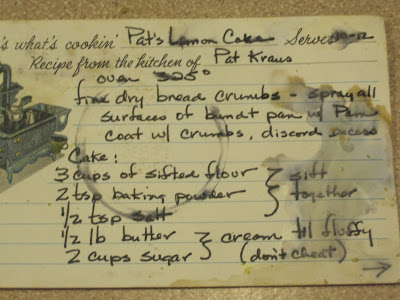 's what's cookin' Pat's Lemon Cake Serves 10-12
Recipe from the kitchen of Pat Kraus
oven 325°
fine dry bread crumbs - spray all
surfaces of bundt pan w/ Pam
coat w/ crumbs, discord excess
Cake:
3 cups of sifted flour } sift
2 tsp baking powder } together
1/2 tsp salt
1/2 lb butter } cream til fluffy
2 cups sugar } (don't cheat)
→